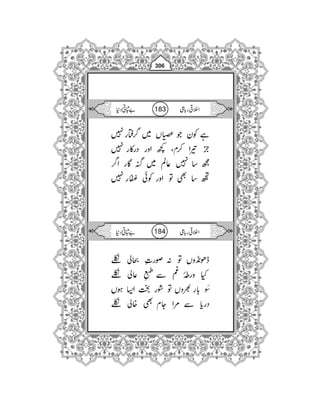 306
اخلاقی رباعی 183 بے ثباتی دنیا
ہے کون جو عصیاں میں گرفتار نہیں
جز تیرا کرم، کچھ اور درکار نہیں
مجھ سا نہیں عالم میں گنہ گار اگر
تجھ سا بھی تو اور کوئی غفار نہیں
اخلاقی رباعی 184 بے ثباتی دنیا
ڈھونڈوں تو نہ صورت بحالی نکلے
کیا ورطۂ غم سے طبع عالی نکلے
سو بار بھروں تو شور بخت ایسا ہوں
دریا سے مرا جام بھی خالی نکلے